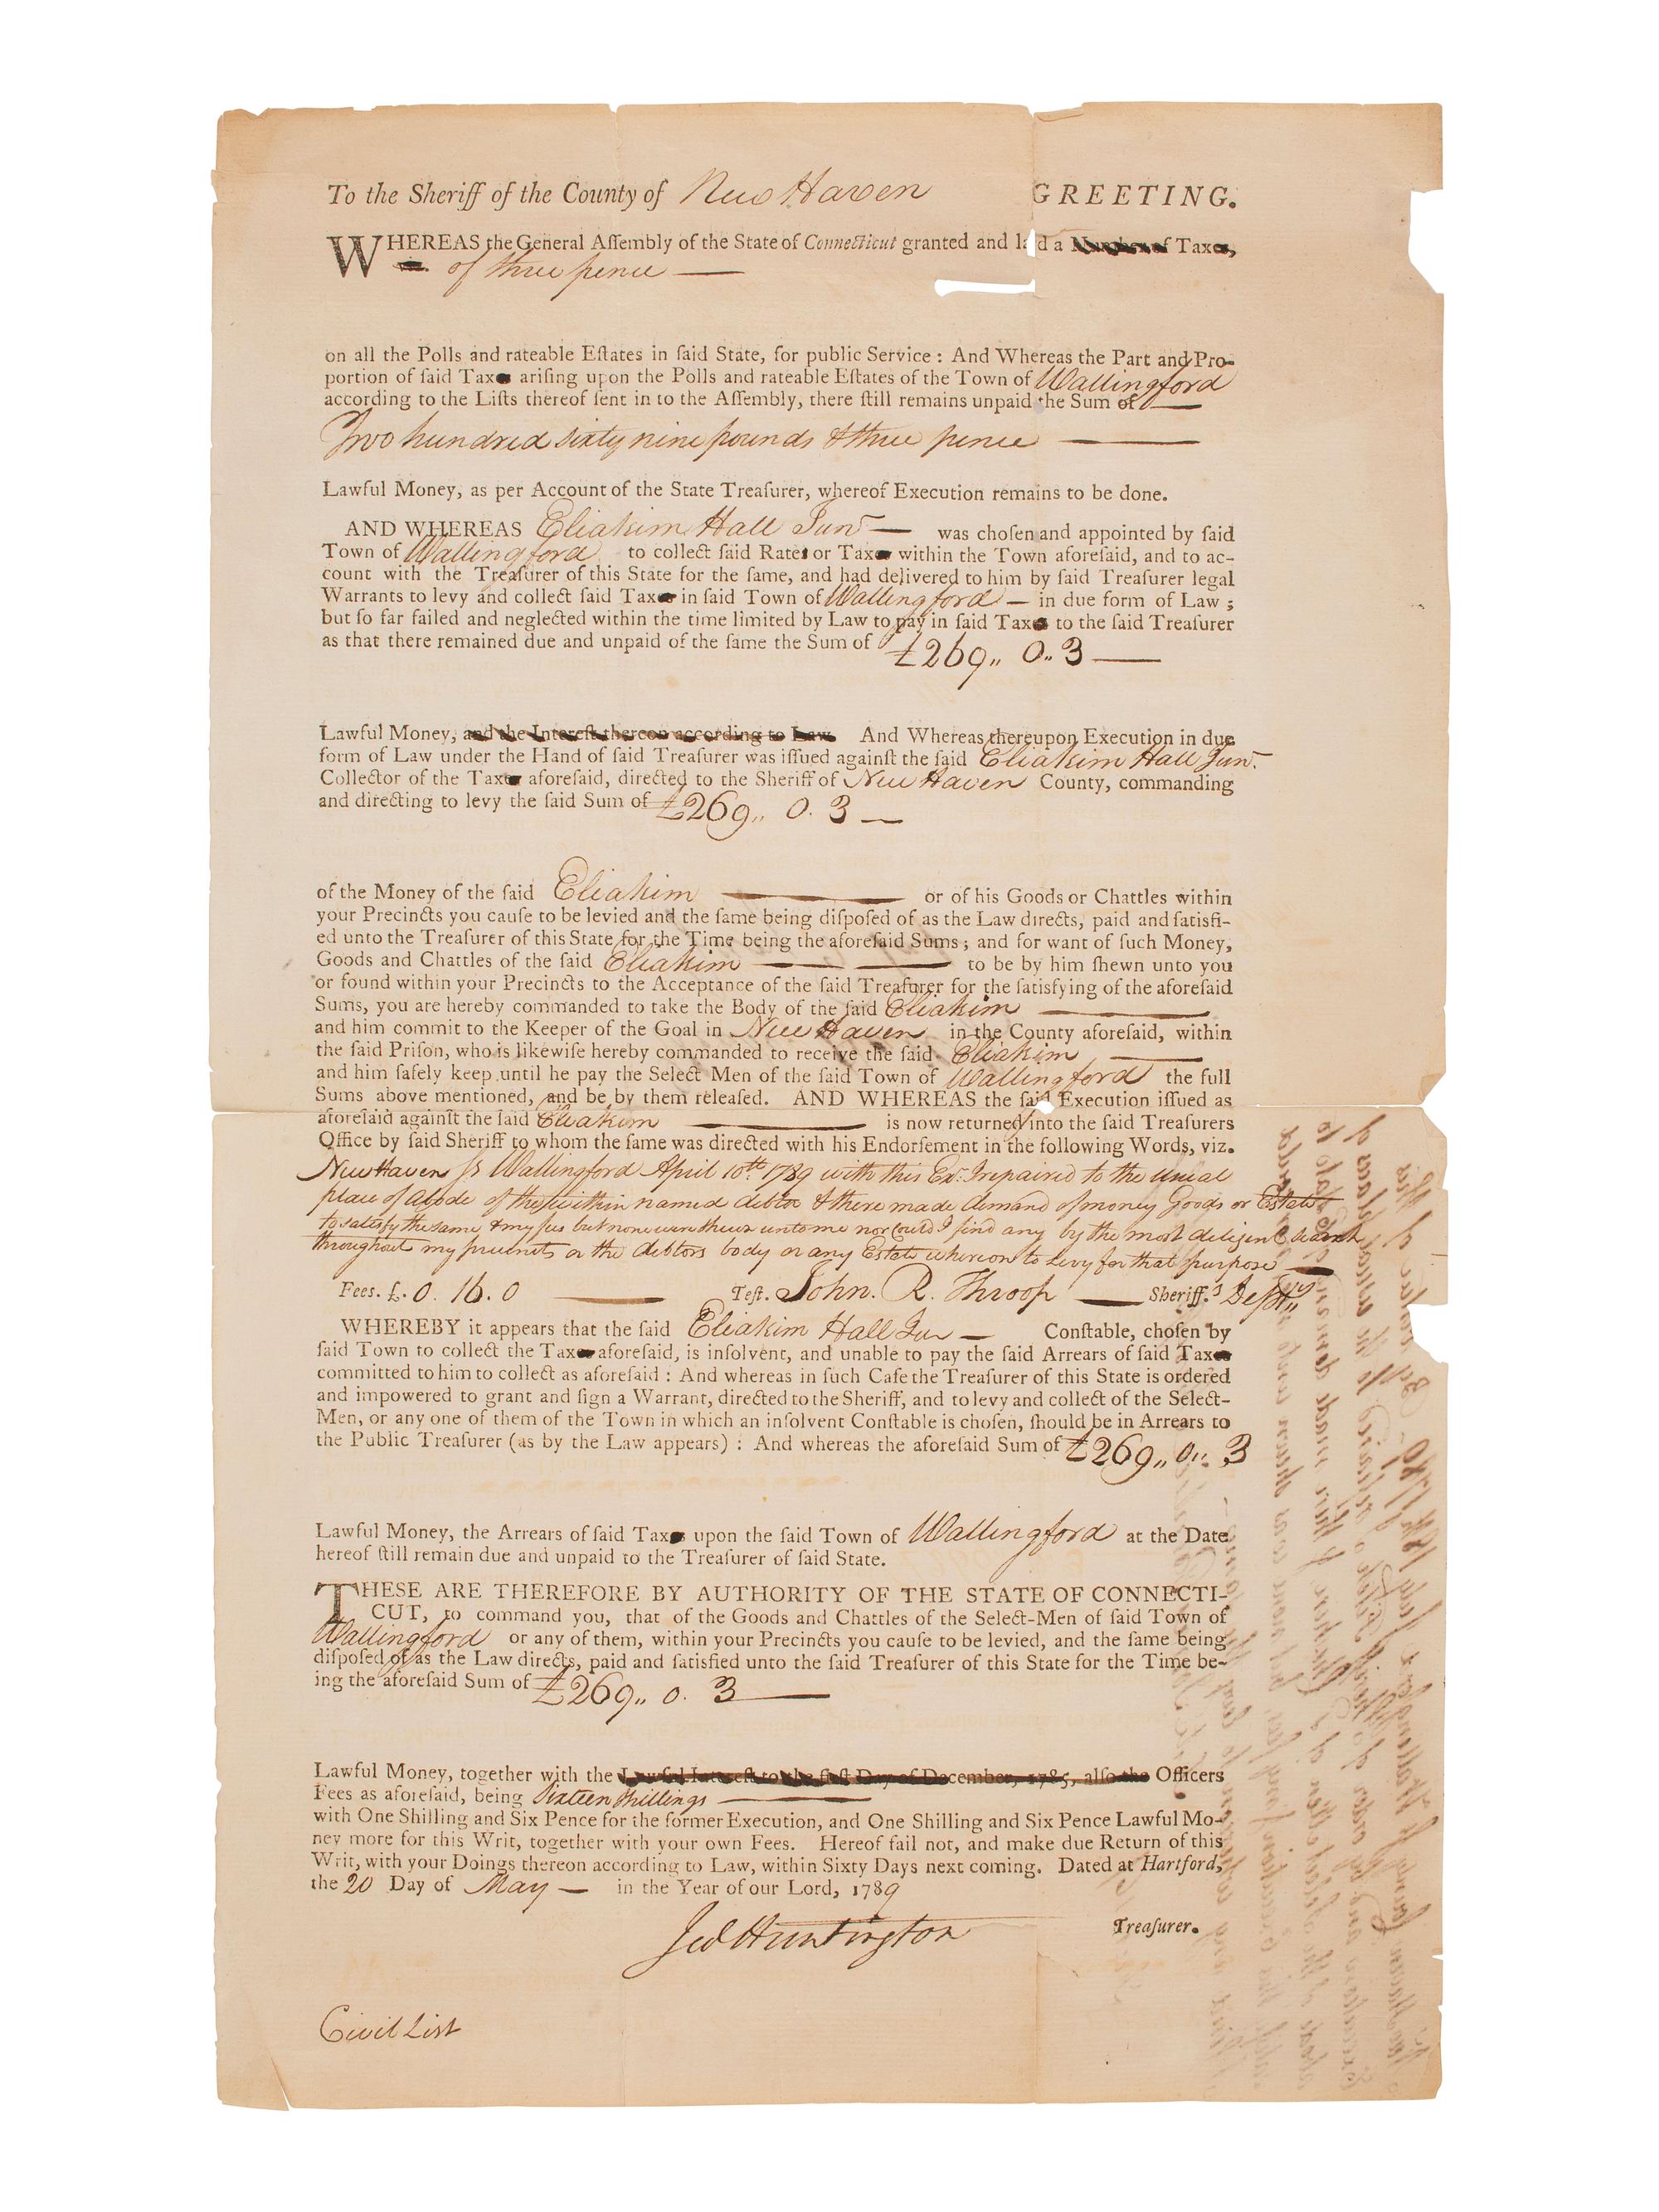 To the Sheriff of the County of New Haven GREETING.
WHEREAS the General Aſſembly of the State of Connecticut granted and laid a Number of Taxes,
of three pence —
on all the Polls and rateable Eſtates in ſaid State, for public Service : And Whereas the Part and Pro-
portion of ſaid Tax ariſing upon the Polls and rateable Eſtates of the Town of Wallingford
according to the Liſts thereof ſent in to the Aſſembly, there ſtill remains unpaid the Sum of —
Two hundred sixty nine pounds & three pence —
Lawful Money, as per Account of the State Treaſurer, whereof Execution remains to be done.
AND WHEREAS Eliakim Hall Junr — was choſen and appointed by ſaid
Town of Wallingford to collect ſaid Rates or Tax within the Town aforeſaid, and to ac-
count with the Treaſurer of this State for the ſame, and had delivered to him by ſaid Treaſurer legal
Warrants to levy and collect ſaid Tax in ſaid Town of Wallingford — in due form of Law ;
but ſo far failed and neglected within the time limited by Law to pay in ſaid Tax to the ſaid Treaſurer
as that there remained due and unpaid of the ſame the Sum of £269,, 0,, 3 —
Lawful Money, and the Intereſt thereon according to Law. And Whereas thereupon Execution in due
form of Law under the Hand of ſaid Treaſurer was iſſued againſt the ſaid Eliakim Hall Junr.
Collector of the Tax aforeſaid, directed to the Sheriff of New Haven County, commanding
and directing to levy the ſaid Sum of £269,, 0. 3 —
of the Money of the ſaid Eliakim — or of his Goods or Chattles within
your Precincts you cauſe to be levied and the ſame being diſpoſed of as the Law directs, paid and ſatisfi-
ed unto the Treaſurer of this State for the Time being the aforeſaid Sums ; and for want of ſuch Money,
Goods and Chattles of the ſaid Eliakim — — to be by him ſhewn unto you
or found within your Precincts to the Acceptance of the ſaid Treaſurer for the ſatisfying of the aforeſaid
Sums, you are hereby commanded to take the Body of the ſaid Eliakim —
and him commit to the Keeper of the Goal in New Haven in the County aforeſaid, within
the ſaid Priſon, who is likewiſe hereby commanded to receive the ſaid Eliakim —
and him ſafely keep until he pay the Select Men of the ſaid Town of Wallingford the full
Sums above mentioned, and be by them releaſed. AND WHEREAS the ſaid Execution iſſued as
aforeſaid againſt the ſaid Eliakim — is now returned into the ſaid Treaſurers
Office by ſaid Sheriff to whom the ſame was directed with his Endorſement in the following Words, viz.
New Haven ſs Wallingford April 10th 1789 with this Ex. I repaired to the usual
place of abode of the within named debtor & there made demand of money Goods or Estate
to satisfy the same & my fees but none were shewn unto me nor could I find any by the most diligent search
throughout my precincts or the debtors body or any Estate whereon to levy for that purpose —
Fees. £. 0. 16. 0 — Teſt. John. R. Throop — Sheriff.s Depty
WHEREBY it appears that the ſaid Eliakim Hall Jur — Conſtable, choſen by
ſaid Town to collect the Tax aforeſaid, is inſolvent, and unable to pay the ſaid Arrears of ſaid Tax
committed to him to collect as aforeſaid : And whereas in ſuch Caſe the Treaſurer of this State is ordered
and impowered to grant and ſign a Warrant, directed to the Sheriff, and to levy and collect of the Select-
Men, or any one of them of the Town in which an inſolvent Conſtable is choſen, ſhould be in Arrears to
the Public Treaſurer (as by the Law appears) : And whereas the aforeſaid Sum of £269,, 0,, 3
Lawful Money, the Arrears of ſaid Tax upon the ſaid Town of Wallingford at the Date
hereof ſtill remain due and unpaid to the Treaſurer of ſaid State.
THESE ARE THEREFORE BY AUTHORITY OF THE STATE OF CONNECTI-
CUT, to command you, that of the Goods and Chattles of the Select-Men of ſaid Town of
Wallingford or any of them, within your Precincts you cauſe to be levied, and the ſame being
diſpoſed of as the Law directs, paid and ſatisfied unto the ſaid Treaſurer of this State for the Time be-
ing the aforeſaid Sum of £269,, 0. 3 —
Lawful Money, together with the Lawful Intereſt to the firſt Day of December, 1785, alſo the Officers
Fees as aforeſaid, being Sixteen Shillings —
with One Shilling and Six Pence for the former Execution, and One Shilling and Six Pence Lawful Mo-
ney more for this Writ, together with your own Fees. Hereof fail not, and make due Return of this
Writ, with your Doings thereon according to Law, within Sixty Days next coming. Dated at Hartford,
the 20 Day of May — in the Year of our Lord, 1789
Jed Huntington Treaſurer.
Civil List